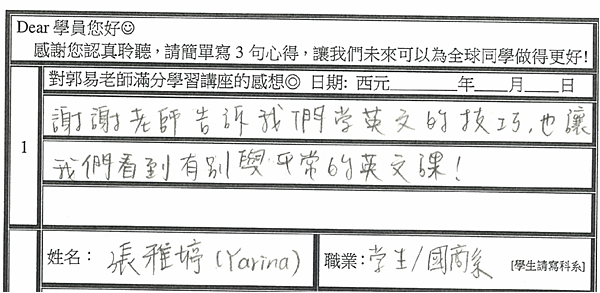 Dear 學員您好☺
感謝您認真聆聽，請簡單寫 3 句心得，讓我們未來可以為全球同學做得更好!
對郭易老師滿分學習講座的感想◎ 日期: 西元________年____月____日
1
謝謝老師告訴我們学英文的技巧,也讓
我們看到有別與平常的英文課!
姓名： 張雅婷 (Yarina)
職業：学生/國商系 [學生請寫科系]